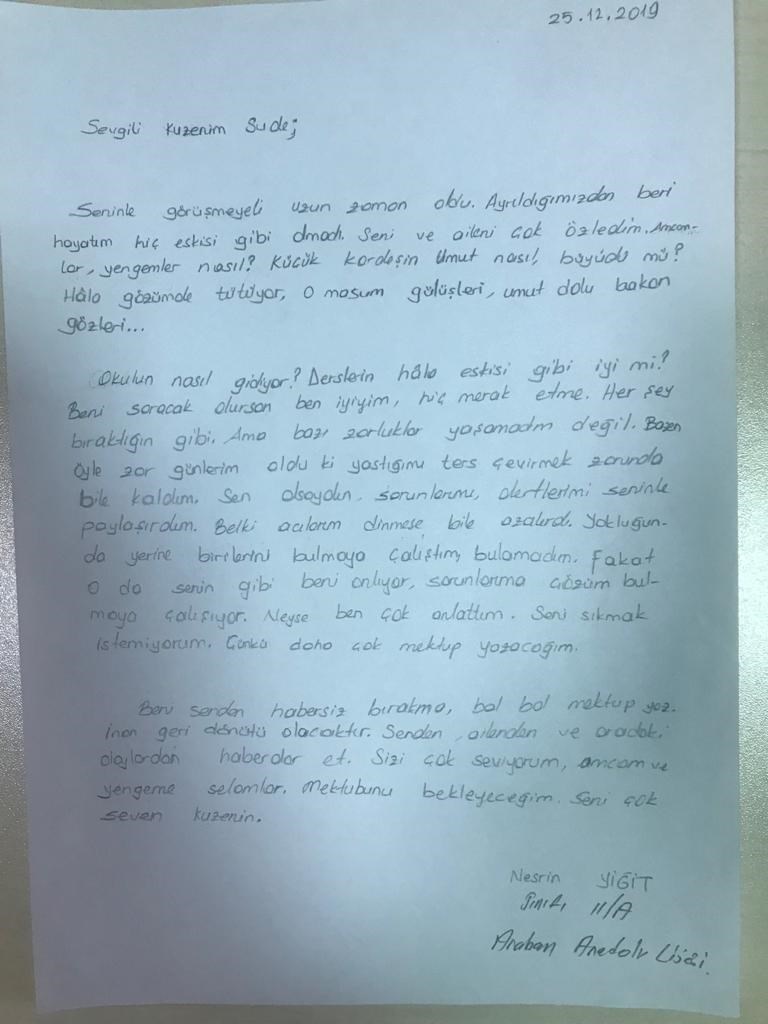 25.12.2019
Sevgili Kuzenim Sude;
Seninle görüşmeyeli uzun zaman oldu. Ayrıldığımızdan beri
hayatım hiç eskisi gibi olmadı. Seni ve aileni çok özledim. Amcam-
lar, yengemler nasıl? Küçük kardeşin Umut nasıl, büyüdü mü?
Hâlâ gözümde tütüyor, o masum gülüşleri, umut dolu bakan
gözleri...
Okulun nasıl gidiyor? Derslerin hâlâ eskisi gibi iyi mi?
Beni soracak olursan ben iyiyim, hiç merak etme. Her şey
bıraktığın gibi. Ama bazı zorluklar yaşamadım değil. Bazen
öyle zor günlerim oldu ki yastığımı ters çevirmek zorunda
bile kaldım. Sen olsaydın, sorunlarımı, dertlerimi seninle
paylaşırdım. Belki acılarım dinmese bile azalırdı. Yokluğun-
da yerine birilerini bulmaya çalıştım, bulamadım. Fakat
o da senin gibi beni anlıyor, sorunlarıma çözüm bul-
maya çalışıyor. Neyse ben çok anlattım. Seni sıkmak
istemiyorum. Çünkü daha çok mektup yazacağım.
Beni senden habersiz bırakma, bol bol mektup yaz.
İnan geri dönütü olacaktır. Senden, ailenden ve oradaki
olaylardan haberdar et. Sizi çok seviyorum, amcam ve
yengeme selamlar. Mektubunu bekleyeceğim. Seni çok
seven kuzenin.
Nesrin YİĞİT
Sınıfı 11/A
Araban Anadolu Lisesi.